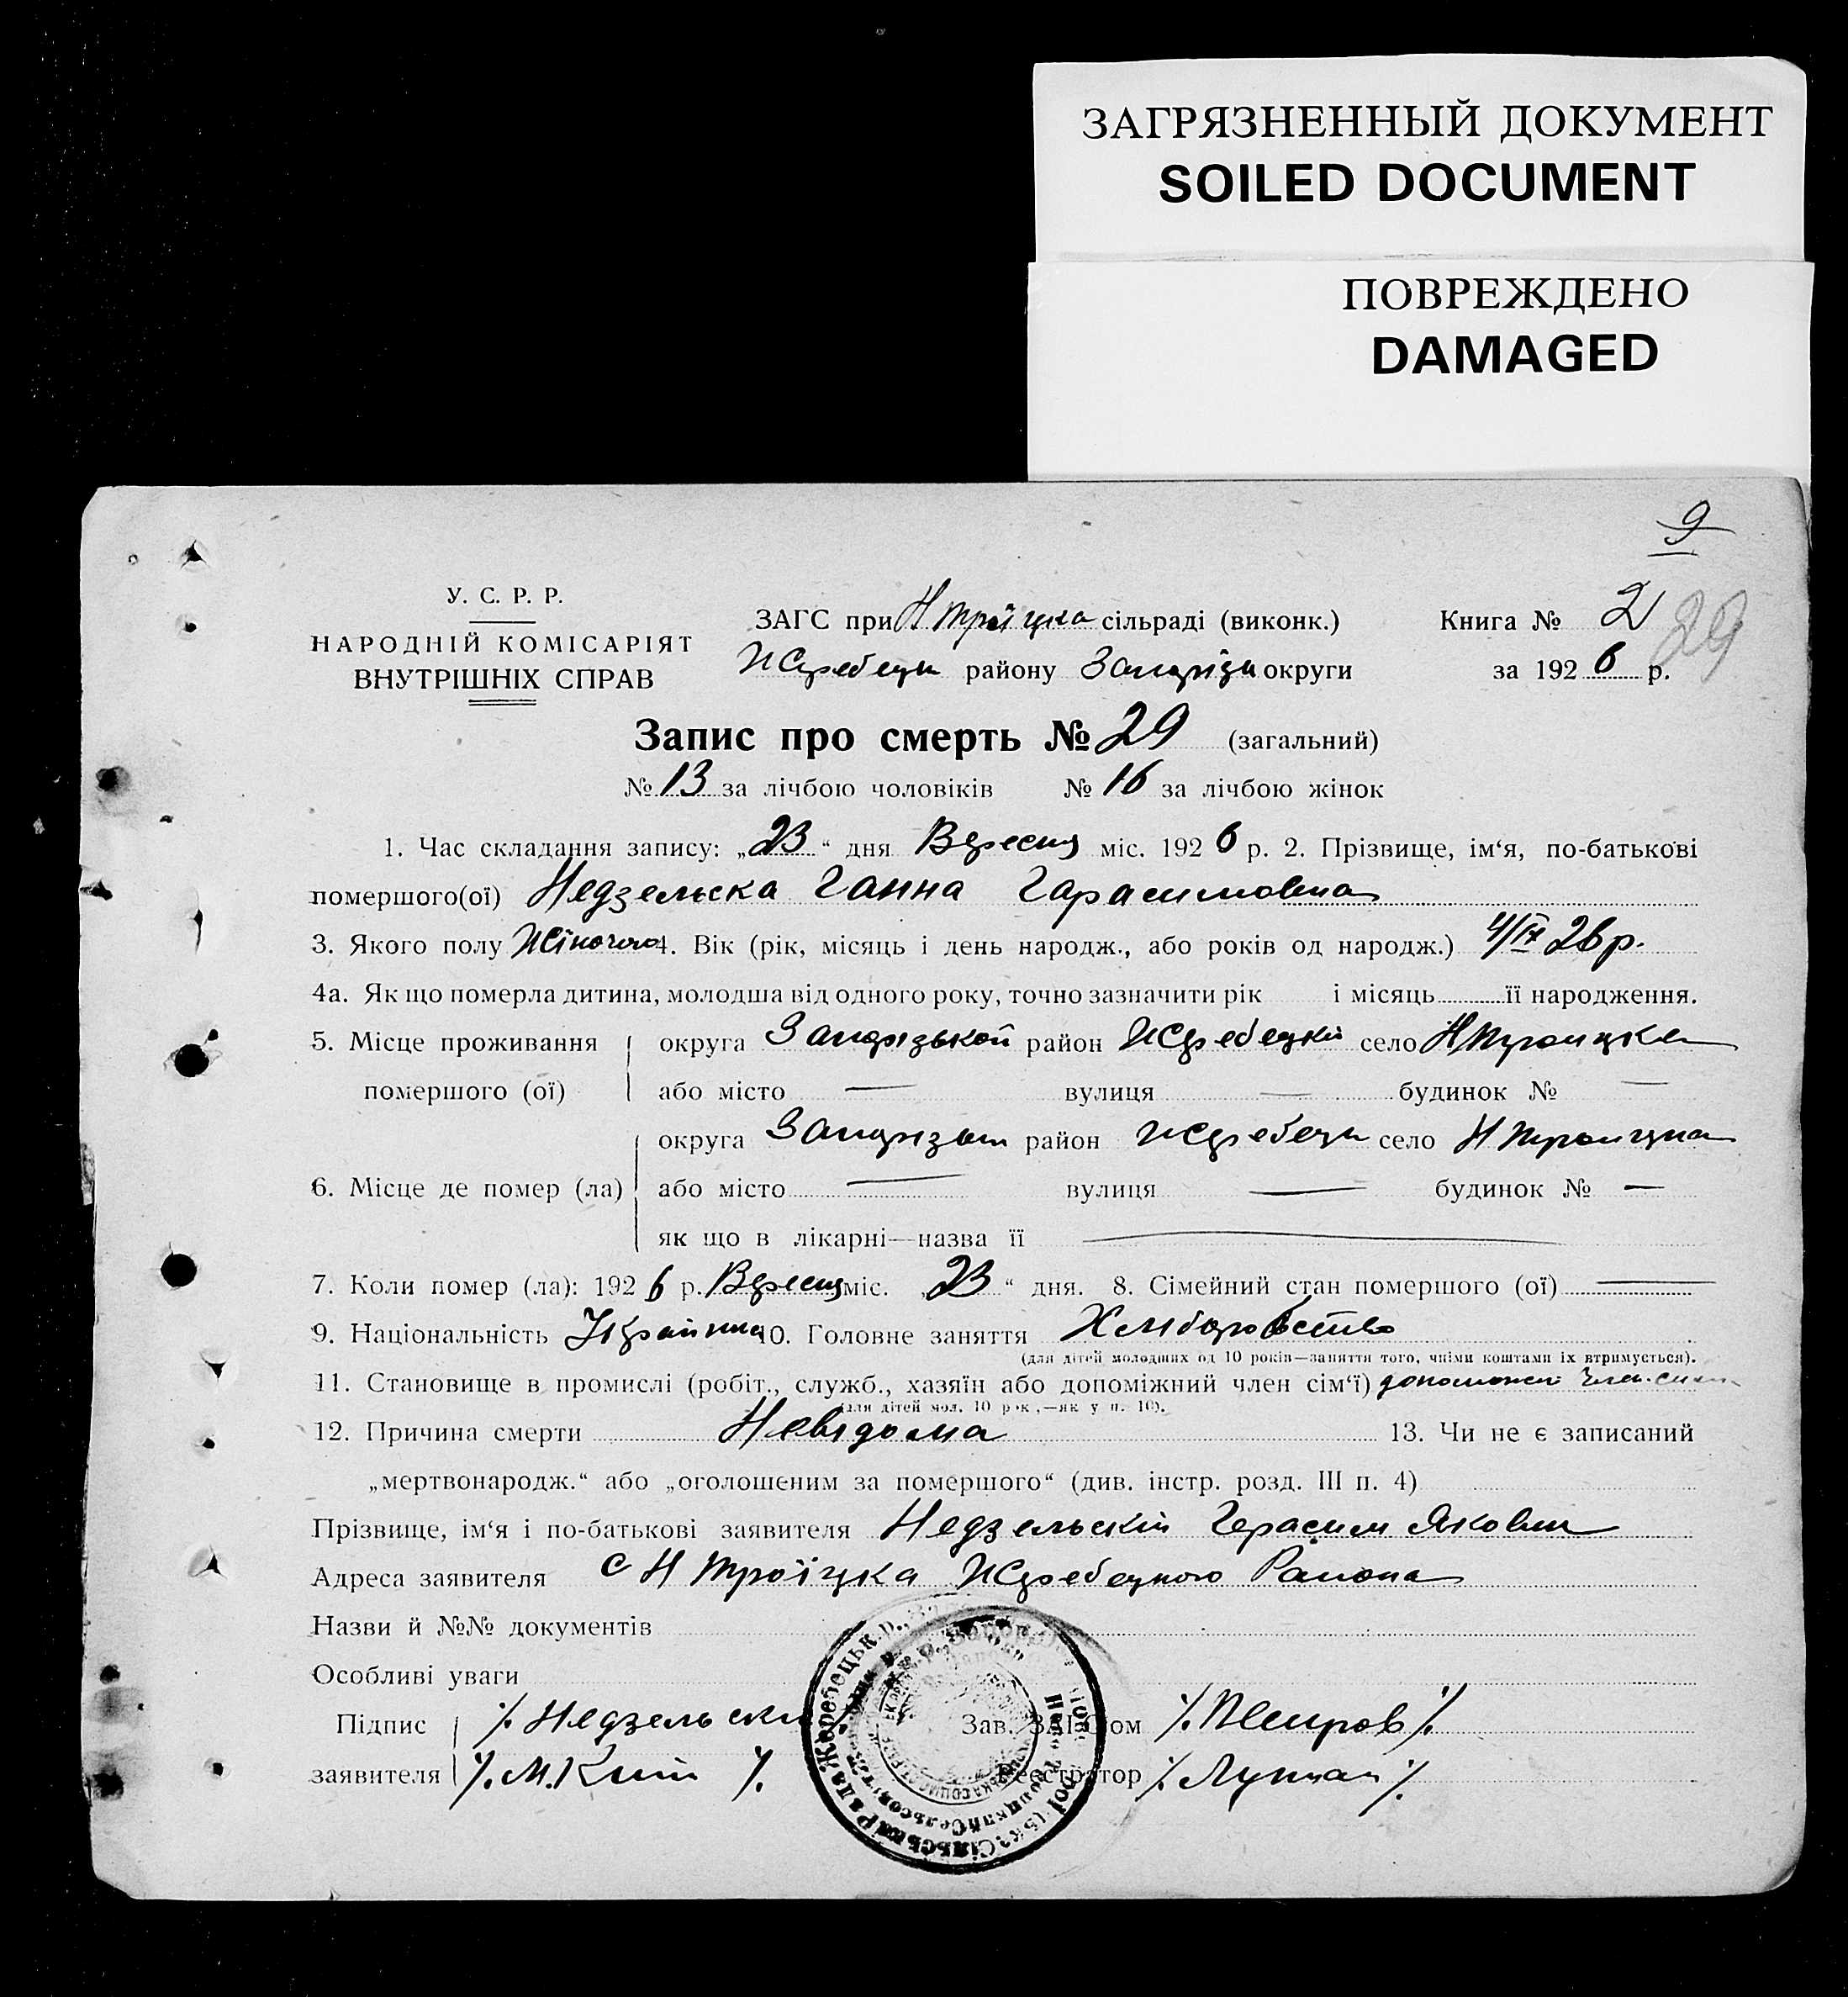 ЗАГРЯЗНЕННЫЙ ДОКУМЕНТ
SOILED DOCUMENT
ПОВРЕЖДЕНО
DAMAGED
9
У. С. Р. Р.
НАРОДНІЙ КОМІСАРІЯТ
ВНУТРІШНІХ СПРАВ
ЗАГС при Н Троїцка сільраді (виконк.)
Жеребець району Запоріз округи
Книга № 2
29
за 1926 р.
Запис про смерть № 29 (загальний)
№ 13 за лічбою чоловіків № 16 за лічбою жінок
1. Час складання запису: „23“ дня Вересня міс. 1926 р. 2. Прізвище, ім‘я, по-батькові
помершого(ої) Недзельска Ганна Гарасимовна
3. Якого полу Жіночого 4. Вік (рік, місяць і день народж., або років од народж.) 4/IX 26 р.
4а. Як що померла дитина, молодша від одного року, точно зазначити рік і місяць її народження.
5. Місце проживання округа Запорізькой район Жеребецкій село Н Троицка
помершого (ої) або місто — вулиця — будинок № —
округа Запорізьк район Жеребець село Н Троицка
6. Місце де помер (ла) або місто — вулиця — будинок № —
як що в лікарні—назва її —
7. Коли помер (ла): 1926 р. Вересня міс. „23“ дня. 8. Сімейний стан помершого (ої) —
9. Національність Українка 10. Головне заняття Хліборобство
(для дітей молодших од 10 років—заняття того, чиїми коштами їх втримується).
11. Становище в промислі (робіт., служб., хазяїн або допоміжний член сім‘ї) допоможні член. сим
(для дітей мол. 10 рок,—як у п. 10).
12. Причина смерти Невідома 13. Чи не є записаний
„мертвонародж.“ або „оголошеним за помершого“ (див. інстр. розд. III п. 4)
Прізвище, ім‘я і по-батькові заявителя Недзельскій Герасим Яковл
Адреса заявителя с Н Троїцка Жеребецкого Района
Назви й №№ документів
Особливі уваги
Підпис /. Недзельски Зав. ЗАГСом /. Петров /.
заявителя /. М. Кит /. Реєстратор /. Лупай /.